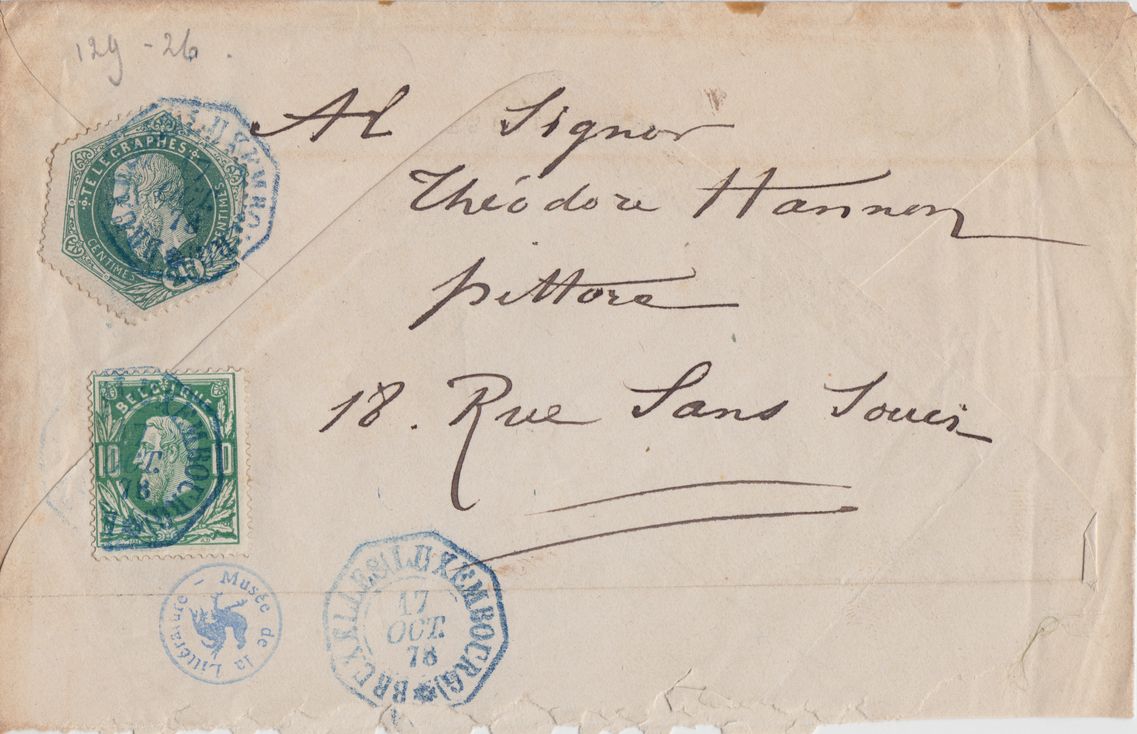 129-26.
Al Signor
Théodore Hannon
pittore
18. Rue Sans Souci
TÉLÉGRAPHES
CENTIMES
CENTIMES
25
BELGIQUE
10 10
OCT.
78
Musée de la Littérature -
BRUXELLES (LUXEMBOURG)
17
OCT.
78